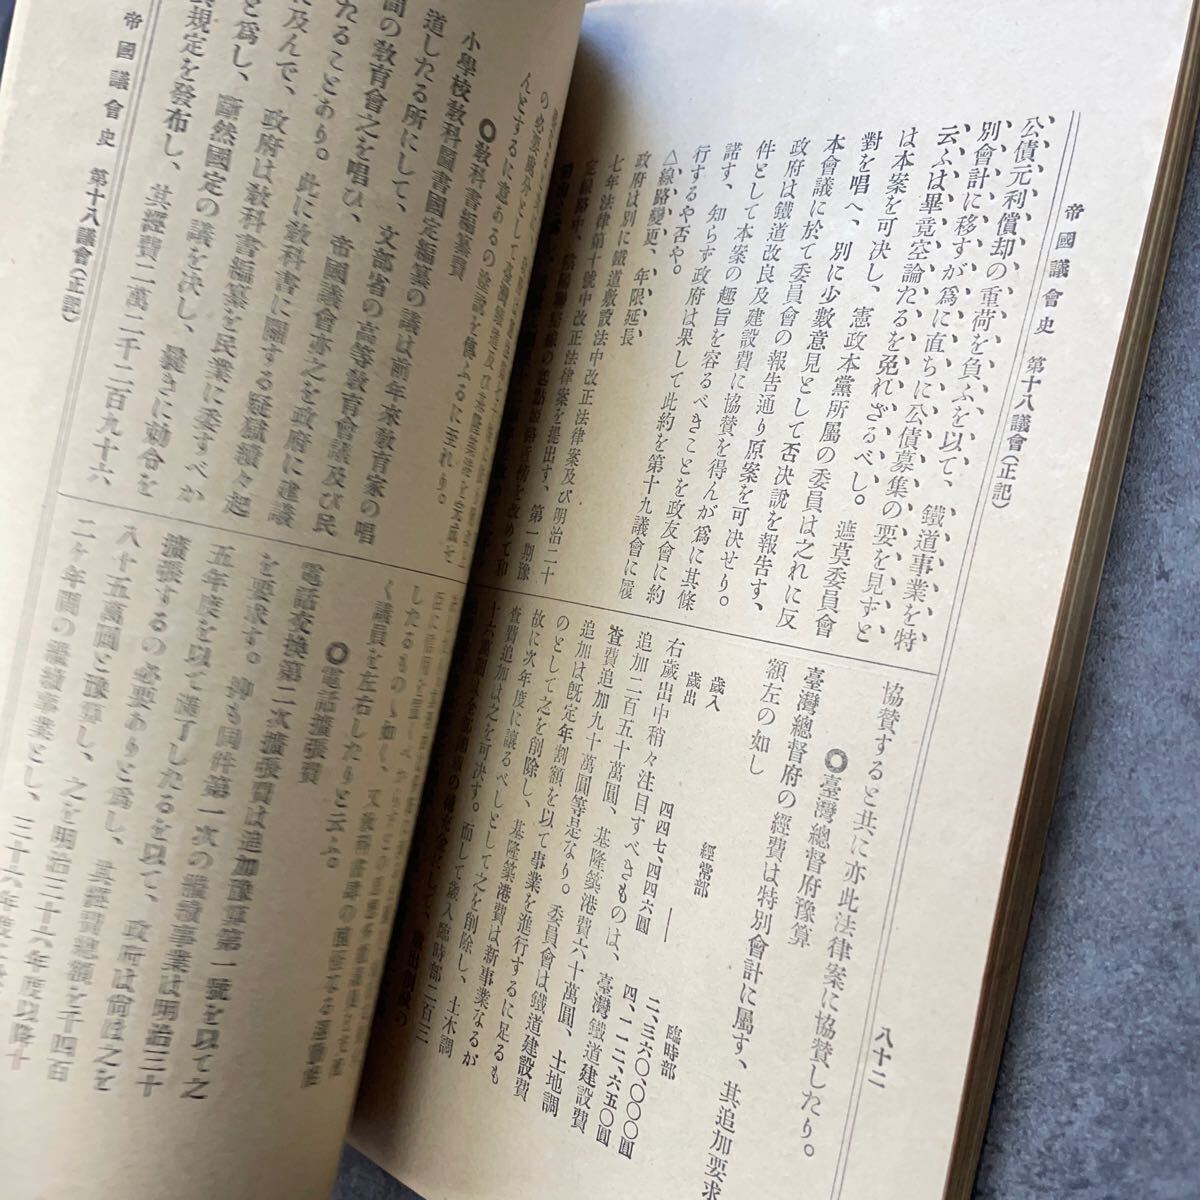 帝國議會史 第十八議會(正記)
八十二
公債元利償却の重荷を負ふを以て、鐵道事業を特
別會計に移すが爲に直ちに公債募集の要を見ずと
云ふは畢竟空論たるを免れざるべし。遮莫委員會
は本案を可决し、憲政本黨所屬の委員は之れに反
對を唱へ、別に少數意見として否决說を報告す、
本會議に於て委員會の報告通り原案を可决せり。
政府は鐵道改良及建設費に協賛を得んが爲に其條
件として本案の趣旨を容るべきことを政友會に約
諾す、知らず政府は果して此約を第十九議會に履
行するや否や。
△線路變更、年限延長
政府は別に鐵道敷設法中改正法律案及び明治二十
七年法律第十號中改正法律案を提出す、第一期豫
協賛すると共に亦此法律案に協賛したり。
◎臺灣總督府豫算
臺灣總督府の經費は特別會計に屬す、其追加要求
額左の如し
經常部 臨時部
歲入 四四七、四四六圓 二、三六〇、〇〇〇圓
歲出 ― 四、一一二、六五〇圓
右歲出中稍々注目すべきものは、臺灣鐵道建設費
追加二百五十萬圓、基隆築港費六十萬圓、土地調
査費追加九十萬圓等是なり。委員會は鐵道建設費
追加は既定年割額を以て事業を進行するに足るも
のとして之を削除し、基隆築港費は新事業なるが
故に次年度に讓るべしとして之を削除し、土木調
査費追加は之を可决す。而して歲入臨時部二百三
帝國議會史 第十八議會(正記)
◎敎科書編纂費
小學校敎科圖書國定編纂の議は前年來敎育家の唱
道したる所にして、文部省の高等敎育會議及び民
間の敎育會之を唱ひ、帝國議會亦之を政府に建議
たることあり。此に敎科書に關する疑獄續々起
に及んで、政府は敎科書編纂を民業に委すべか
と爲し、斷然國定の議を决し、曩きに勅令を
規定を發布し、其經費二萬二千二百九十六
く議員を左右したりと云ふ。
◎電話擴張費
電話交換第二次擴張費は追加豫算第一號を以て之
を要求す。抑も同件第一次の繼續事業は明治三十
五年度を以て滿了したるを以て、政府は尙ほ之を
擴張するの必要ありと爲し、其經費總額を千四百
八十五萬圓と豫算し、之を明治三十六年度以降十
二ヶ年間の繼續事業とし、